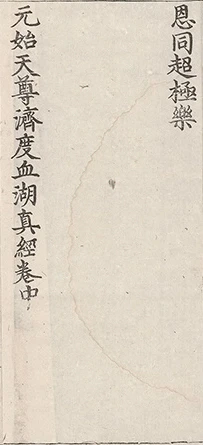 恩同超極樂
元始天尊濟度血湖真經卷中